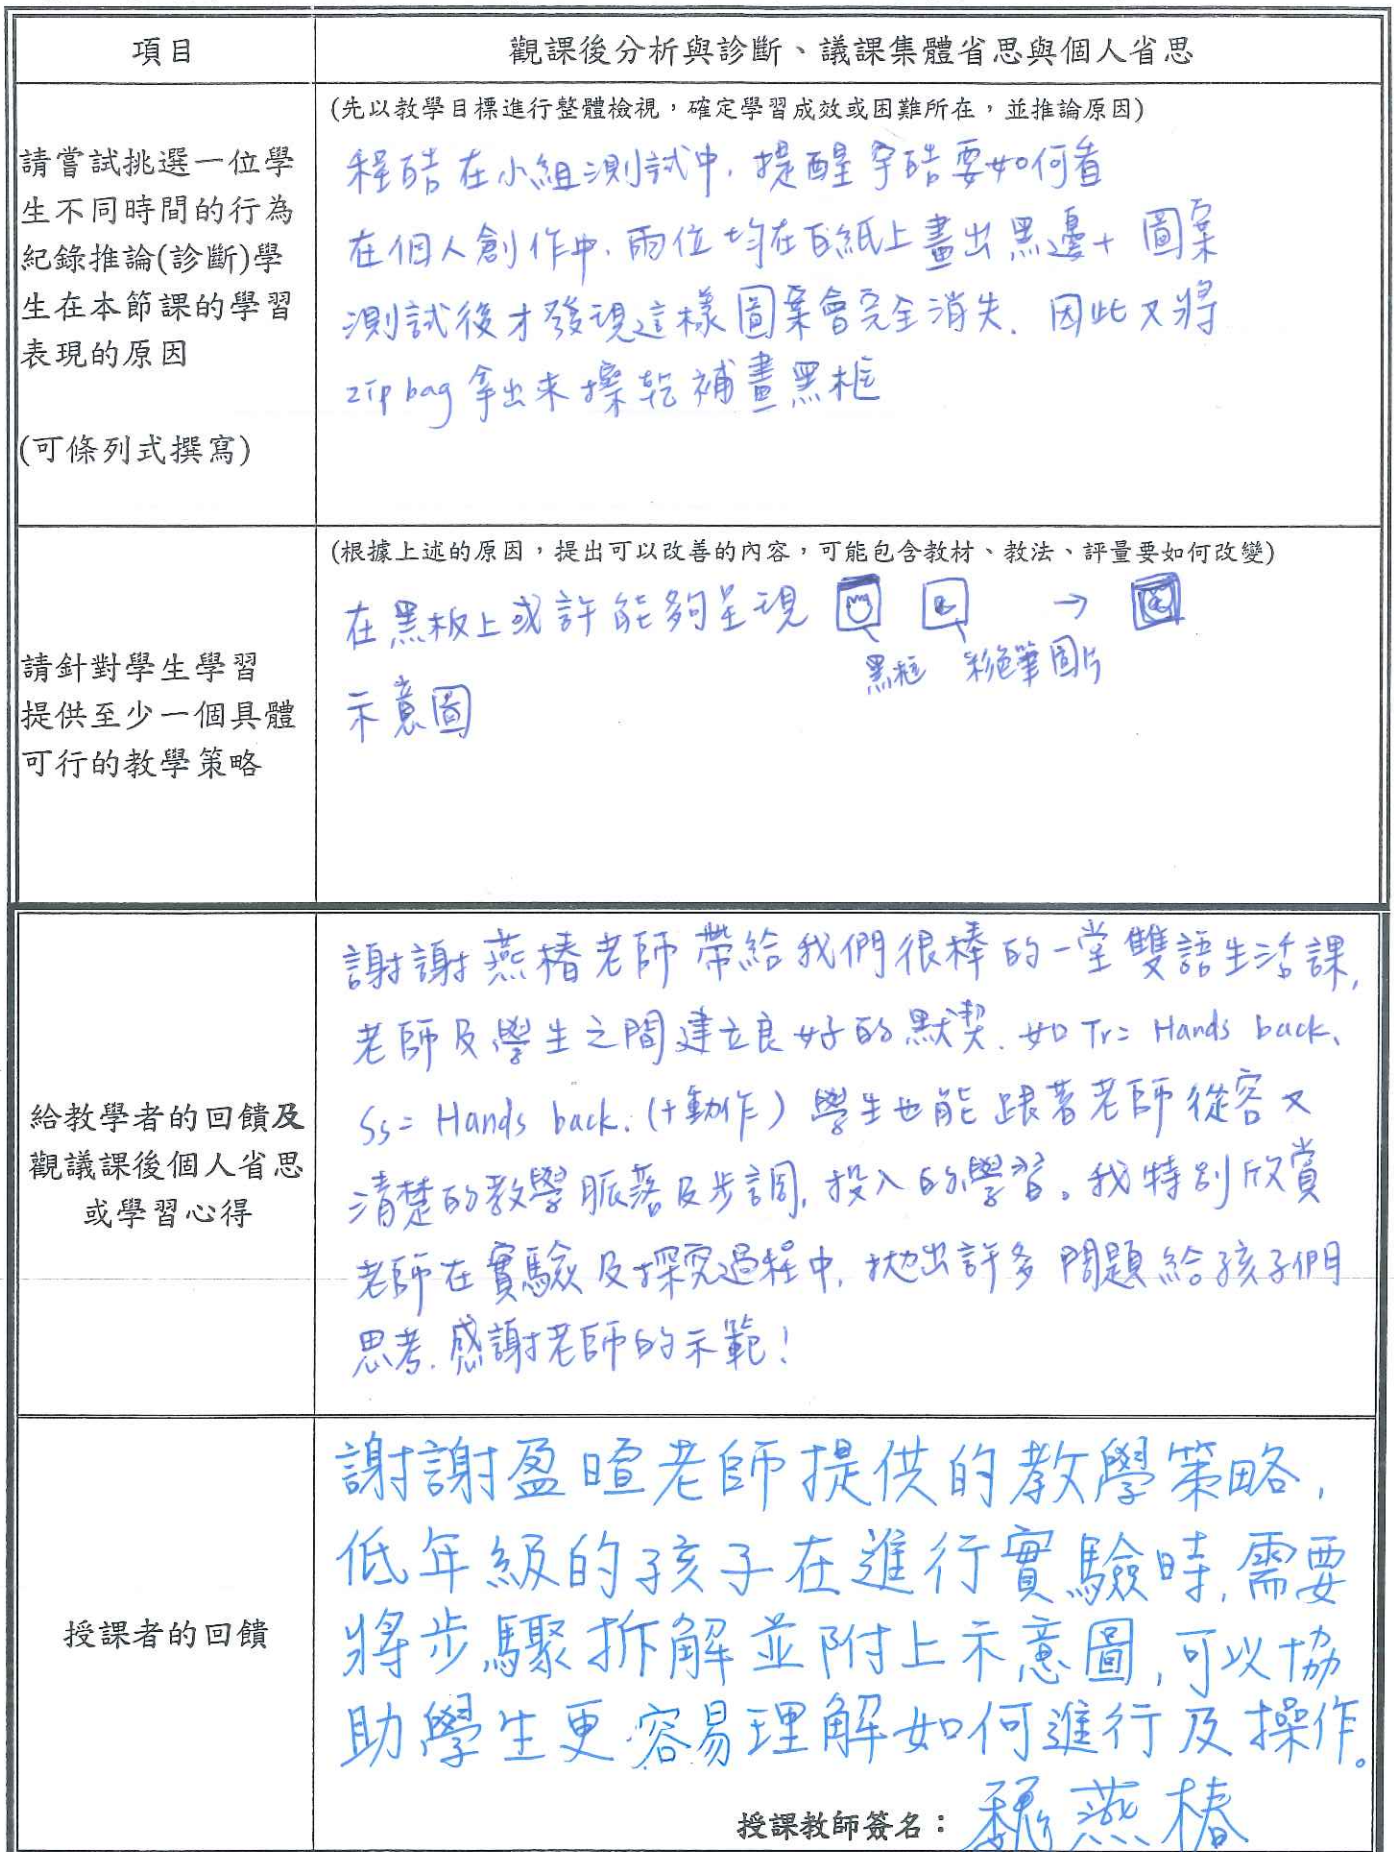 項目
觀課後分析與診斷、議課集體省思與個人省思
請嘗試挑選一位學
生不同時間的行為
紀錄推論(診斷)學
生在本節課的學習
表現的原因
(可條列式撰寫)
(先以教學目標進行整體檢視，確定學習成效或困難所在，並推論原因)
程皓在小組測試中，提醒宇皓要如何看
在個人創作中，兩位均在白紙上畫出黑邊+圖案
測試後才發現這樣圖案會完全消失．因此又將
zip bag 拿出來擦乾補畫黑框
請針對學生學習
提供至少一個具體
可行的教學策略
(根據上述的原因，提出可以改善的內容，可能包含教材、教法、評量要如何改變)
在黑板上或許能夠呈現 →
黑框 彩色筆圖片
示意圖
給教學者的回饋及
觀議課後個人省思
或學習心得
謝謝燕椿老師帶給我們很棒的一堂雙語生活課，
老師及學生之間建立良好的默契．如Tr= Hands back、
Ss= Hands back. (+動作) 學生也能跟著老師從容又
清楚的教學脈落及步調，投入的學習。我特別欣賞
老師在實驗及探究過程中，拋出許多問題給孩子們
思考．感謝老師的示範！
授課者的回饋
謝謝盈暄老師提供的教學策略，
低年級的孩子在進行實驗時，需要
將步驟拆解並附上示意圖，可以協
助學生更容易理解如何進行及操作。
授課教師簽名：魏燕椿